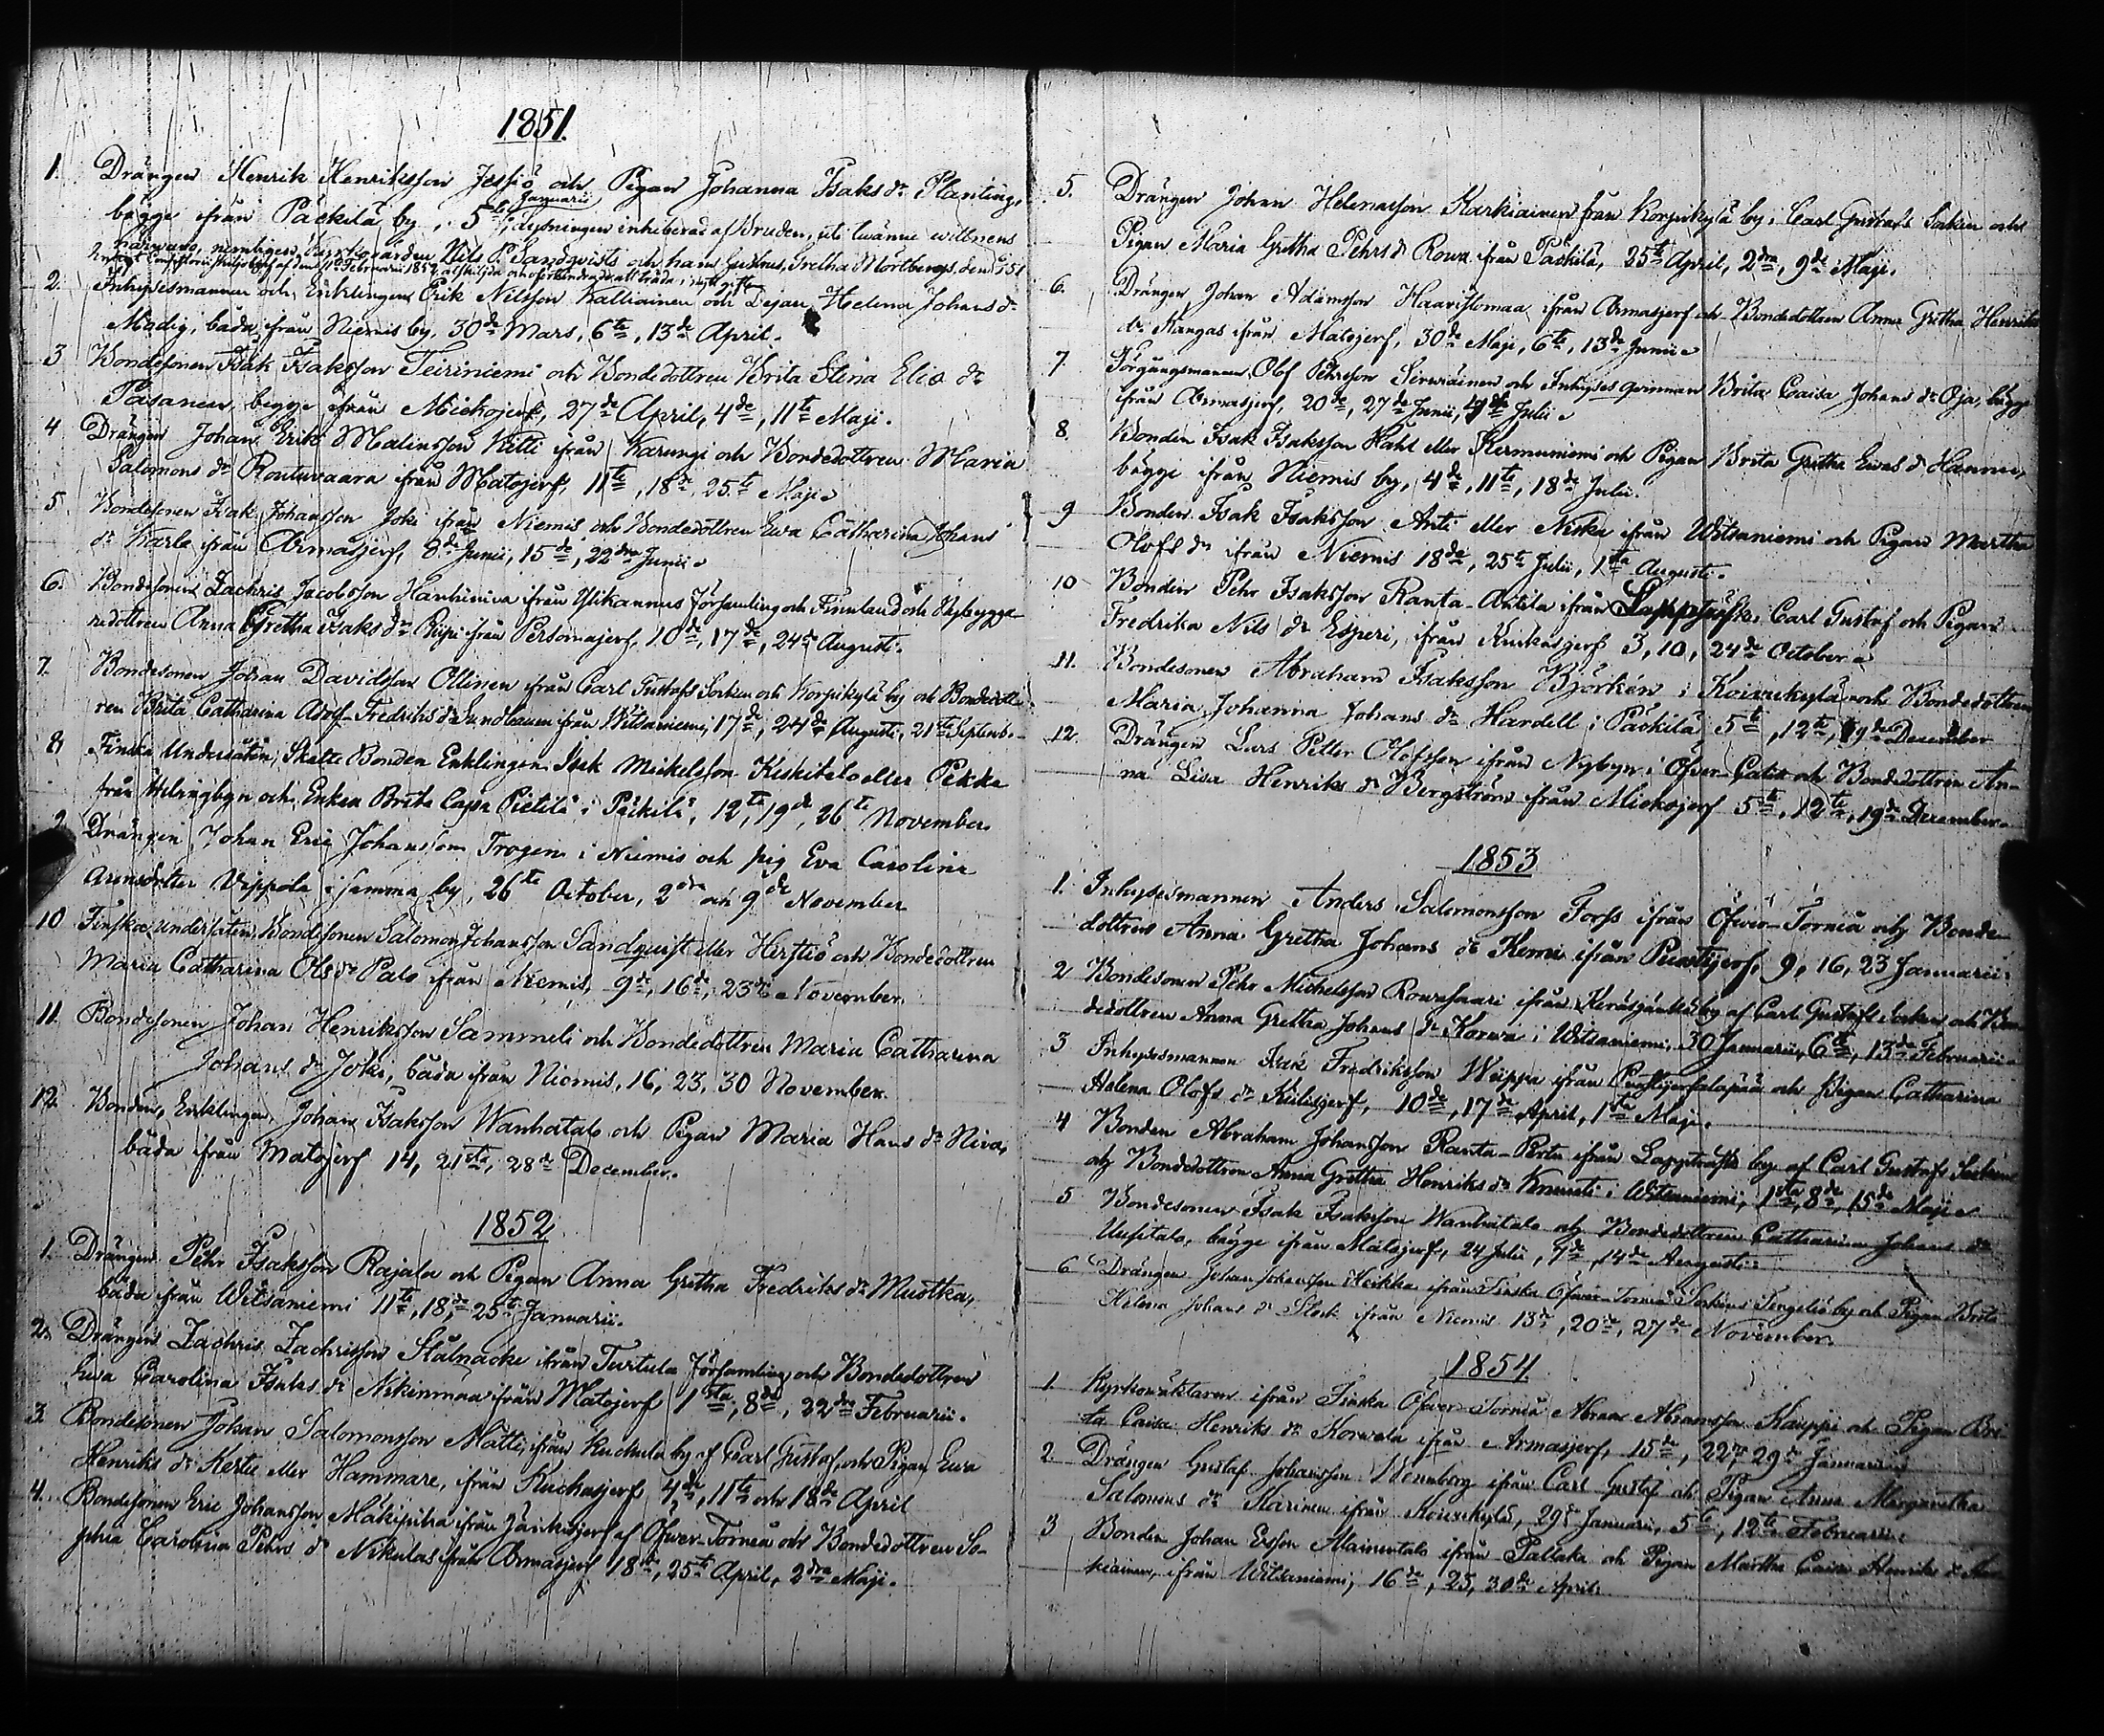 1851.
1. Drängen Henrik Henriksson Jessiö och Pigan Johanna Isaks dr Planting,
begge ifrån Päckilä by, 5te Januarii, lysningen inhiberad af Bruden, uti twänne wittnens
närwaro, nemligen Kyrkowärden Nils P. Sandqvists och hans hustrus, Gretha Mörtbergs, den 5/1 51
2. Inhysesmannen och Enklingen Erik Nilsson Kalliainen och Pejan Helena Johans dr
Modig, båda ifrån Niemis by, 30de Mars, 6te, 13de April.
3 Bondesonen Isak Isaksson Teiriniemi och Bondedottren Brita Stina Elia dr
Pasanen, begge ifrån Miekojerf, 27de April, 4de, 11te Maji.
4 Drängen Johan Erik Malinsson Kitti ifrån Karungi och Bondedottren Maria
Salomons dr Routuvaara ifrån Matojerf, 11te, 18de, 25te Maji
5 Bondesonen Isak Johansson Joki ifrån Niemis och Bondedottren Ewa Catharina Johans
dr Karla ifrån Armasjerf, 8de Junii, 15de, 22dra Junii
6. Bondesonen Zachris Jacobsson Hanhiniva ifrån Ylikannus Församling och Finnland och Nybygga-
redottren Anna Gretha Isaks dr Riipi ifrån Persomajerf, 10de, 17de, 24de Augusti.
7. Bondesonen Johan Davidsson Ollinen ifrån Carl Gustafs Socken och Korpikylä by och Bondedott-
ren Brita Catharina Adolf-Fredriks dr Sundbaum ifrån Witsaniemi, 17de, 24de Augusti, 21sta Septemb.
8 Finska Undersåten, Skatte Bonden Enklingen Isak Mickelsson Keskitalo eller Pekka
från Helsingbyn och Enkan Brita Cajsa Pietilä i Päckilä, 12te, 19de, 26te November
9 Drängen Johan Eric Johansson Trogen i Niemis och pig Eva Carolina
Arensdotter Vippola i samma by, 26te October, 2dra och 9de November
10 Finska undersåten, Bondesonen Salomon Johansson Sandquist eller Herstiö och Bondedottren
Maria Catharina Ols dr Palo ifrån Niemis, 9de, 16de, 23de November.
11. Bondesonen Johan Henriksson Sammeli och Bondedottren Maria Catharina
Johans dr Joki, båda ifrån Niemis, 16, 23, 30 November.
12. Bonden, Enklingen, Johan Isaksson Wanhatalo och Pigan Maria Hans dr Niva,
båda ifrån Matojerf 14, 21sta, 28de December.
1852
1. Drängen Pehr Isaksson Rajala och Pigan Anna Gretha Fredriks dr Muotka,
båda ifrån Witsaniemi 11te, 18de, 25te Januarii.
2. Drängen Zachris Zachrisson Stålnacke ifrån Turtula Församling och Bondedottren
Ewa Carolina Isaks dr Niskinmaa ifrån Matojerf 1sta, 8de, 22dra Februarii.
3. Bondesonen Johan Salomonsson Matti, ifrån Kuckula by af Carl Gustaf, och Pigan Ewa
Henriks dr Kertu eller Hammare, ifrån Kuckasjerf, 4de, 11te och 18de April
4. Bondesonen Eric Johansson Mäkipiha ifrån Jänkisjerf af Öfwer-Torneå och Bondedottren So-
phia Carolina Pehrs dr Nikulas ifrån Armasjerf 18de, 25te April, 2dra Maji.
5. Drängen Johan Helenasson Karkiainen från Korpikylä by i Carl Gustafs Socken och
Pigan Maria Gretha Pehrs dr Rowa från Päckilä, 25te April, 2dra, 9de Maji.
6. Drängen Johan Adamsson Haaristomaa ifrån Armasjerf och Bondedottren Anna Gretha Henriks
dr Mangas ifrån Matojerf, 30de Maji, 6te, 13de Junii
7. Förgångsmannen Olof Pehrsson Sirwiäinen och Inhyses qwinnan Brita Caisa Johans dr Oja, begge
ifrån Armasjerf, 20de, 27de Junii, Julii
8. Bonden Isak Isaksson Kaht eller Keromuniemi och Pigan Brita Gretha Ewas dr Hannu,
begge ifrån Niemis by, 4de, 11te, 18de Julii.
9 Bonden Isak Isaksson Anti eller Niska ifrån Witsaniemi och Pigan Martha
Olofs dr ifrån Niemis 18de, 25te Julii, 1sta Augusti.
10 Bonden Pehr Isaksson Ranta-Antila ifrån Lappträsk i Carl Gustaf och Pigan
Fredrika Nils dr Esperi, ifrån Kuckasjerf 3, 10, 24de October
11. Bondesonen Abraham Isaksson Björkén i Koivukylä och Bondedottren
Maria Johanna Johans dr Hardell i Päckilä, 5te, 12te, 19de December
12. Drängen Lars Petter Olofsson ifrån Nybyn i Öfver Calix och Bondedottren An-
na Lisa Henriks dr Bergström ifrån Miekojerf 5te, 12te, 19de December.
1853
1. Inhysesmannen Anders Salomonsson Forss ifrån Öfwer-Torneå och Bonde-
dottren Anna Gretha Johans dr Kemi ifrån Puostijerf, 9, 16, 23 Januarii.
2 Bondesonen Pehr Michelsson Rowasaari ifrån Keräsjänkä by af Carl Gustafs Socken och Bon-
dedottren Anna Gretha Johans dr Korwa i Witsaniemi, 30 Januarii, 6te, 13de Februarii
3 Inhysesmannen Isak Fredriksson Weippa ifrån Puostijerfalapää och Pigan Catharina
Helena Olofs dr Kulisjerf, 10de, 17de April, 1sta Maji.
4 Bonden Abraham Johansson Ranta-Perta ifrån Lappträsk by af Carl Gustafs Socken
och Bondedottren Anna Gretha Henriks dr Knuuti i Witsaniemi, 1sta, 8de, 15de Maji
5 Bondesonen Isak Isaksson Wanhatalo och Bondedottren Catharina Johans dr
Uusitalo, begge ifrån Matojerf, 24 Julii, 7de, 14de Augusti.
6 Drängen Johan Johansson Heikka ifrån Finska Öfwer-Torneå Sockens Tengeliö by och Pigan Brita
Helena Johans dr Stock ifrån Niemis 13de, 20de, 27de November.
1854
1. Kyrkowäktaren ifrån Finska Öfwer Torneå Abram Abramsson Kauppi och Pigan Bri-
ta Caisa Henriks dr Korwala ifrån Armasjerf, 15de, 22dra, 29de Januarii
2. Drängen Gustaf Johansson Wennberg ifrån Carl Gustaf och Pigan Anna Margaretha
Salomons dr Karinen ifrån Koivukylä, 29de Januarii, 5te, 12te Februarii.
3 Bonden Johan Ersson Alainentalo ifrån Pallaka och Pigan Martha Caisa Henriks dr
ifrån Witsaniemi, 16de, 23, 30de April.